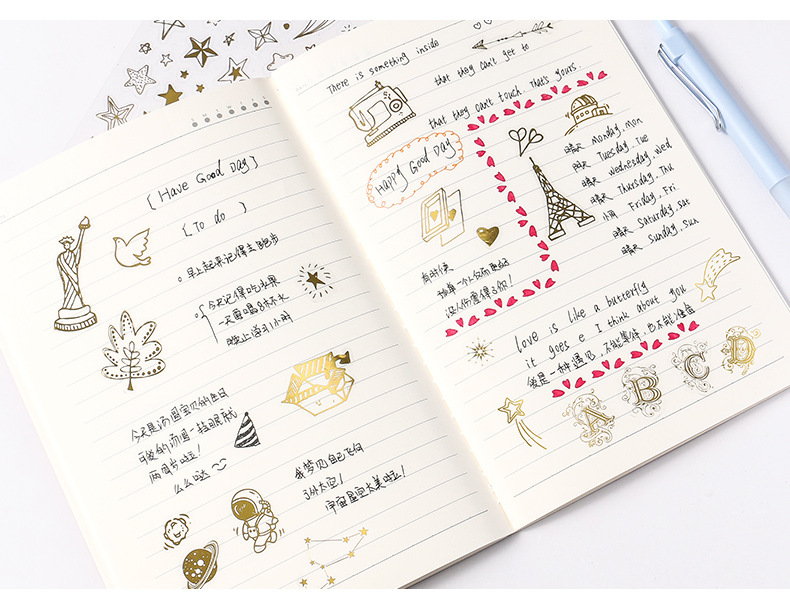 S M T W T F S
[Have Good Day]
[To do ]
早上起来记得去跑步
今天记得吃水果
一天要喝8杯水
晚上学习1小时
今天是汤圆宝贝的生日
可爱的汤圆一转眼就
两周岁啦!
么么哒
我梦见自己飞向
了外太空!
宇宙星空太美啦!
There is something inside
that they can't get to
that they can't touch. That's yours.
Happy Good Day
晴天 Monday, Mon
阴天 Tuesday, Tue
晴天 Wednesday, Wed
晴天 Thursday, Thu
小雨 Friday, Fri
晴天 Saturday, Sat
晴天 Sunday, Sun
有时候
孤单一个人反而更好
没人伤害得了你!
love is like a butterfly
it goes e I think about you
爱是一种遇见,不能等待,也不能准备
A B C D